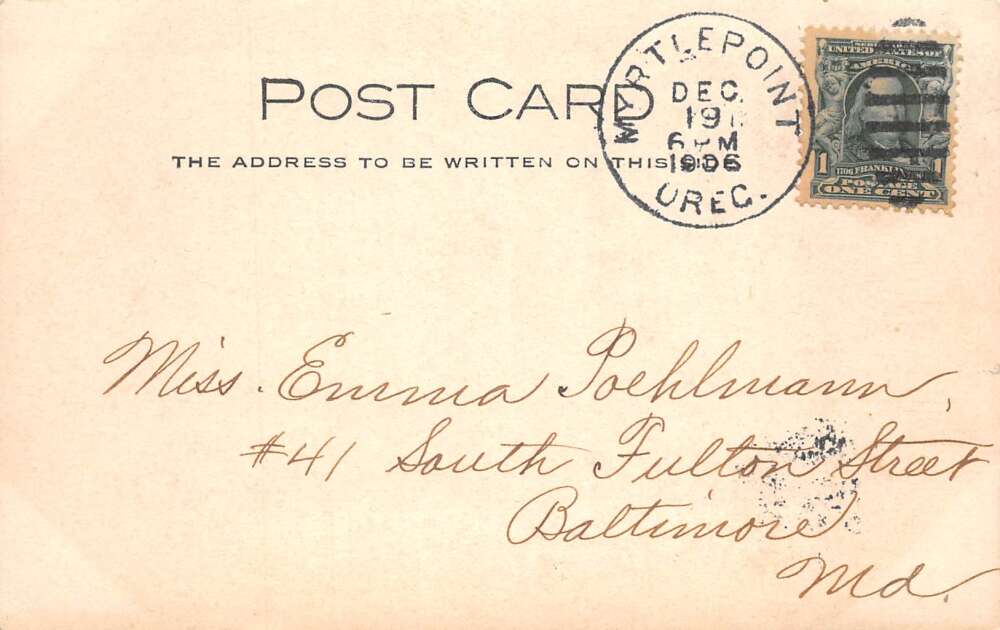 POST CARD
THE ADDRESS TO BE WRITTEN ON THIS SIDE
MYRTLEPOINT
DEC
19
6 PM
1906
OREG.
SERIES 1902
UNITED STATES OF
AMERICA
1 1706 FRANKLIN 1
POSTAGE
ONE CENT
Miss. Emma Poehlmann,
#41 South Fulton Street
Baltimore
Md.